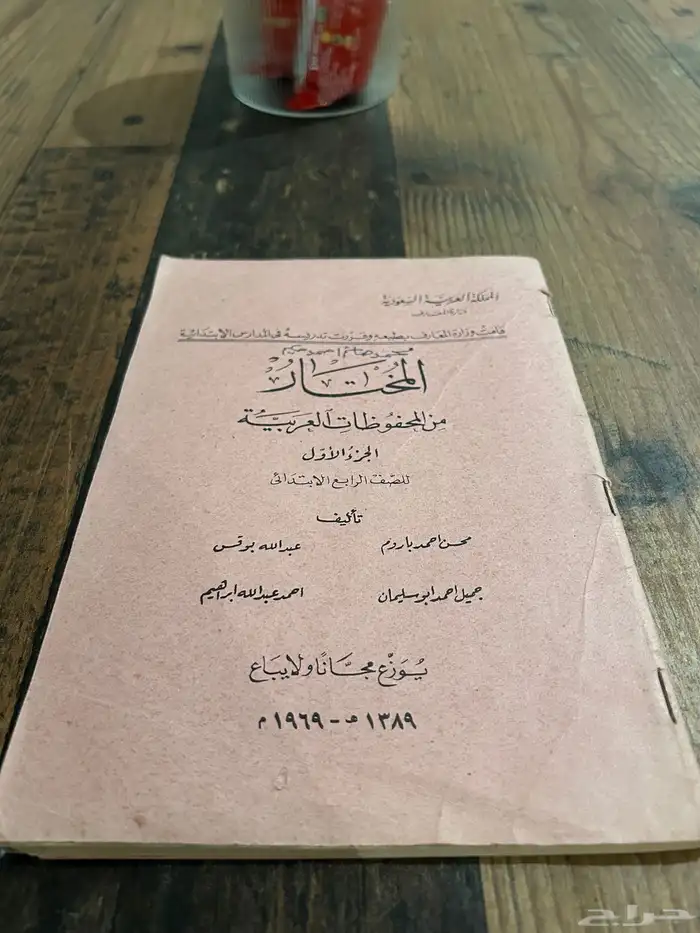 المملكة العربية السعودية
وزارة المعارف
قامت وزارة المعارف بطبعه وقررت تدريسه فى المدارس الابتدائية
محمد هاشم احمد حكيم
المُختَار
مِنَ المحفُوظَاتِ العَرَبيَّة
الجزءُ الأوّل
للصّف الرابع الابتدائى
تأليف
محسن احمد باروم عبدالله بوقس
جميل احمد ابوسليمان احمد عبدالله ابراهيم
يُوَزّع مجَّانًا ولايبَاع
١٣٨٩ هـ - ١٩٦٩ م
حراج